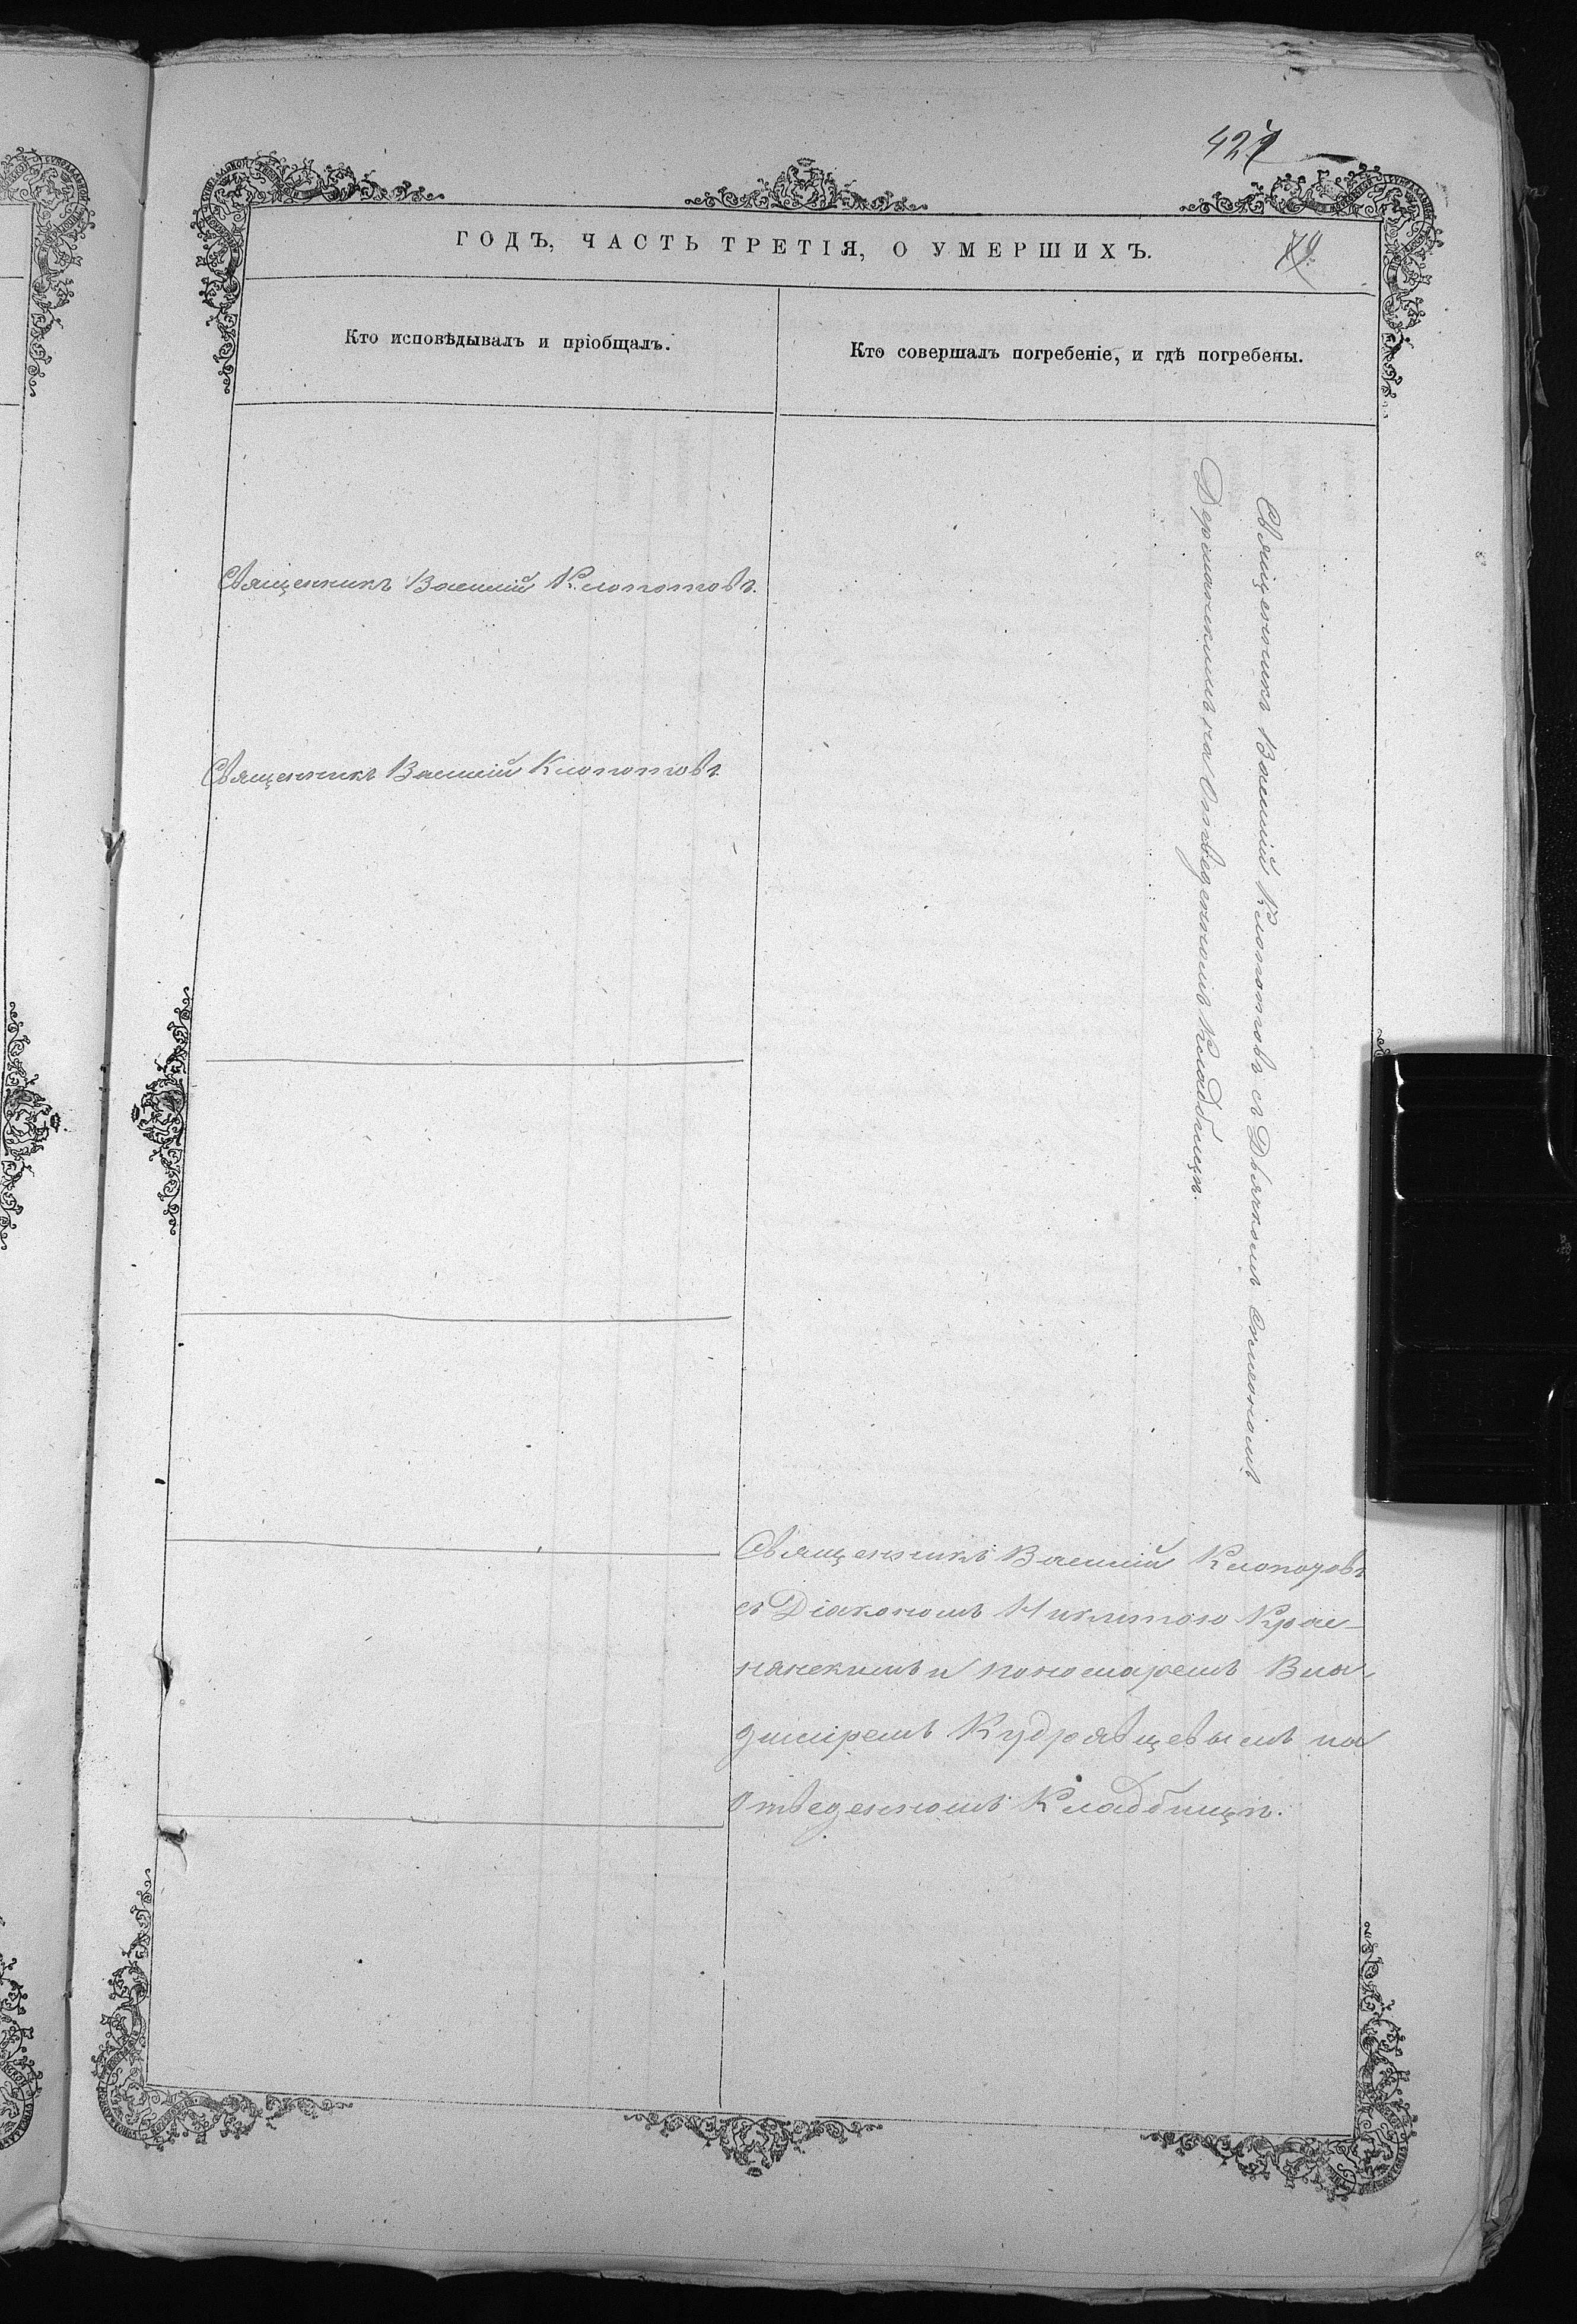 427
ГОДЪ, ЧАСТЬ ТРЕТІЯ, О УМЕРШИХЪ.
Кто исповѣдывалъ и пріобщалъ.
Кто совершалъ погребеніе, и гдѣ погребены.
Священникъ Василій Клопотовъ.
Священникъ Василій Клопотовъ
Священникъ Василій Клопотовъ съ Дьячкомъ
на Отведенномъ Кладбищѣ.
Священникъ Василій Клопотовъ
съ Діакономъ Никитою Крас-
нянскимъ и пономаремъ Вла-
диміремъ Кудрявцевымъ на
Отведенномъ Кладбищѣ.